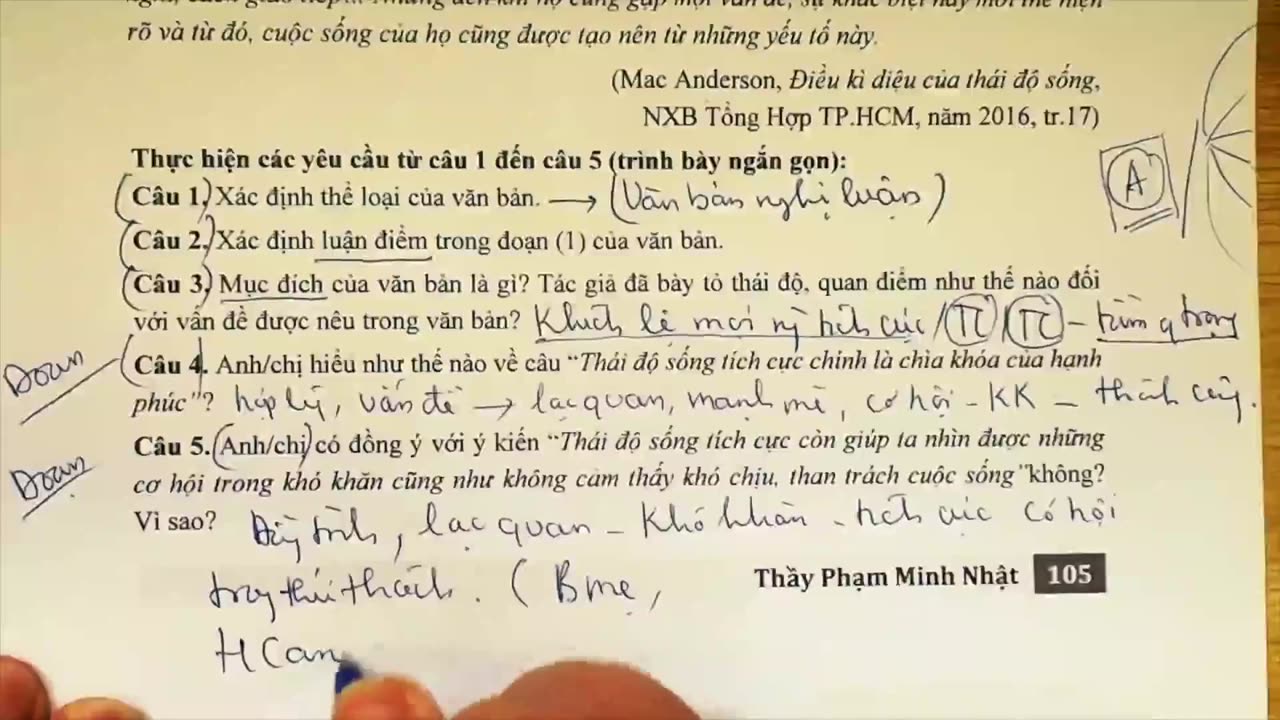 rõ và từ đó, cuộc sống của họ cũng được tạo nên từ những yếu tố này.
(Mac Anderson, Điều kì diệu của thái độ sống,
NXB Tổng Hợp TP.HCM, năm 2016, tr.17)
Thực hiện các yêu cầu từ câu 1 đến câu 5 (trình bày ngắn gọn):
Câu 1. Xác định thể loại của văn bản. → (Văn bản nghị luận)
A
Câu 2. Xác định luận điểm trong đoạn (1) của văn bản.
Câu 3. Mục đích của văn bản là gì? Tác giả đã bày tỏ thái độ, quan điểm như thế nào đối
với vấn đề được nêu trong văn bản? Khích lệ mọi tích cực / TC / TC -
Đoạn Câu 4. Anh/chị hiểu như thế nào về câu “Thái độ sống tích cực chính là chìa khóa của hạnh
phúc”? hợp lý, vấn đề → lạc quan, mạnh mẽ, cơ hội - KK - thành công.
Đoạn Câu 5. (Anh/chị) có đồng ý với ý kiến “Thái độ sống tích cực còn giúp ta nhìn được những
cơ hội trong khó khăn cũng như không cảm thấy khó chịu, than trách cuộc sống”không?
Vì sao? lạc quan - khó khăn - tích cực có hội
thử thách. (B mẹ,
Thầy Phạm Minh Nhật 105
H Can